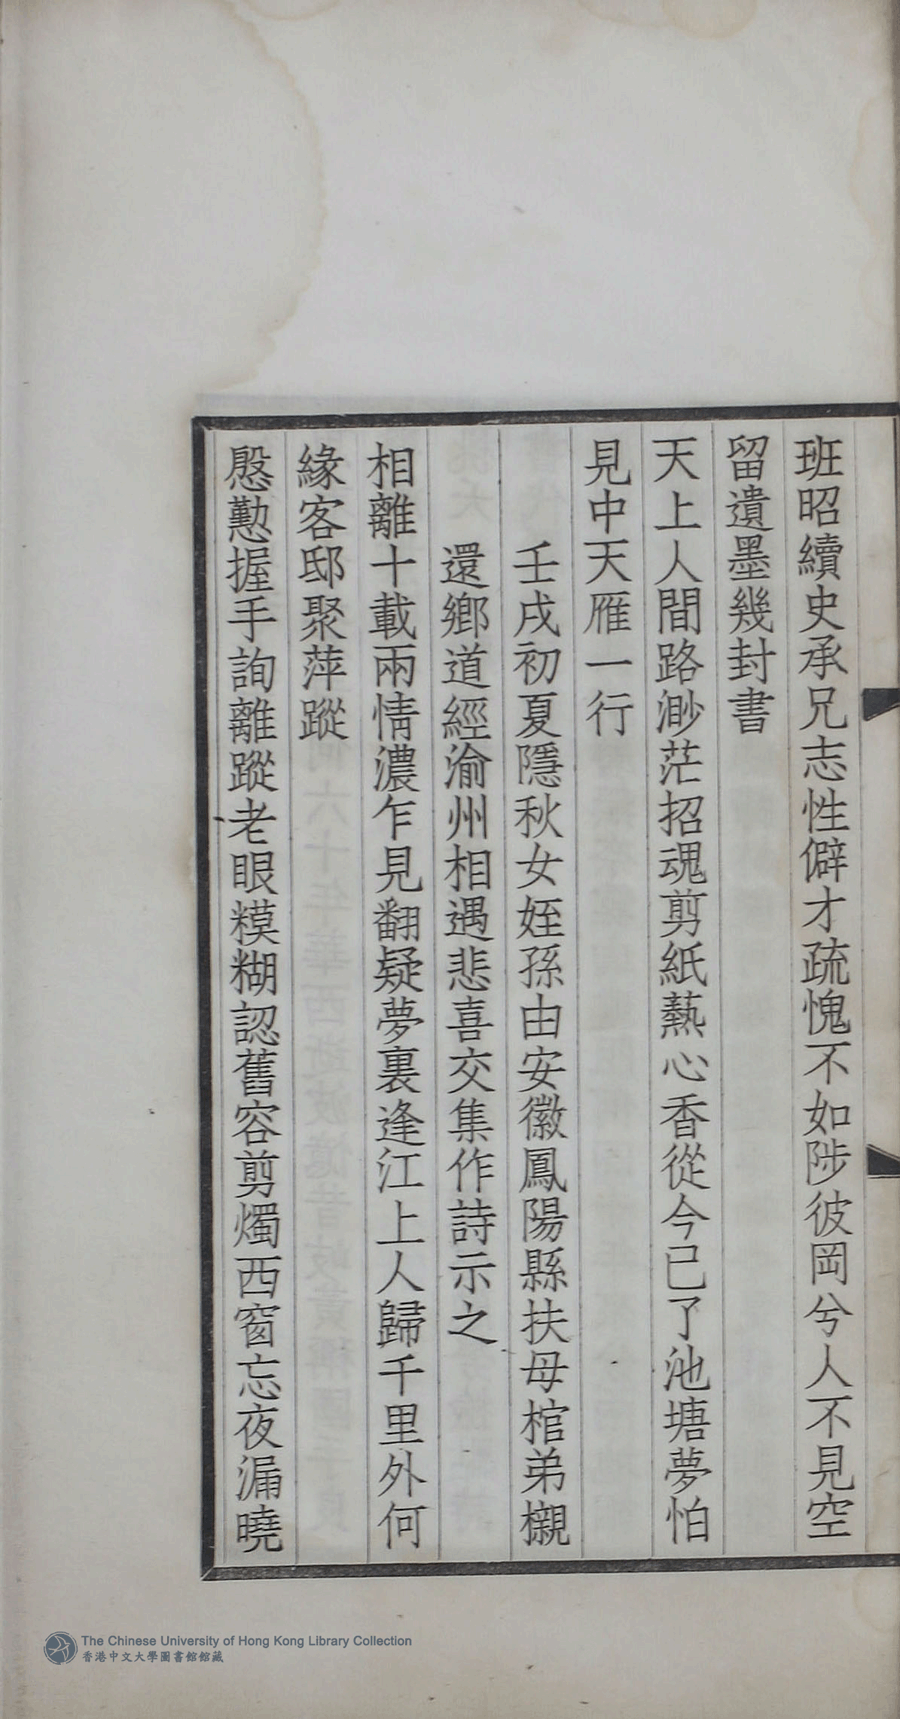 班昭續史承兄志性僻才疏愧不如陟彼岡兮人不見空
留遺墨幾封書
天上人間路渺茫招魂剪紙爇心香從今已了池塘夢怕
見中天雁一行
壬戌初夏隱秋女姪孫由安徽鳳陽縣扶母棺弟櫬
還鄉道經渝州相遇悲喜交集作詩示之
相離十載兩情濃乍見翻疑夢裏逢江上人歸千里外何
緣客邸聚萍蹤
慇懃握手詢離蹤老眼糢糊認舊容剪燭西窗忘夜漏曉
The Chinese University of Hong Kong Library Collection
香港中文大學圖書館館藏